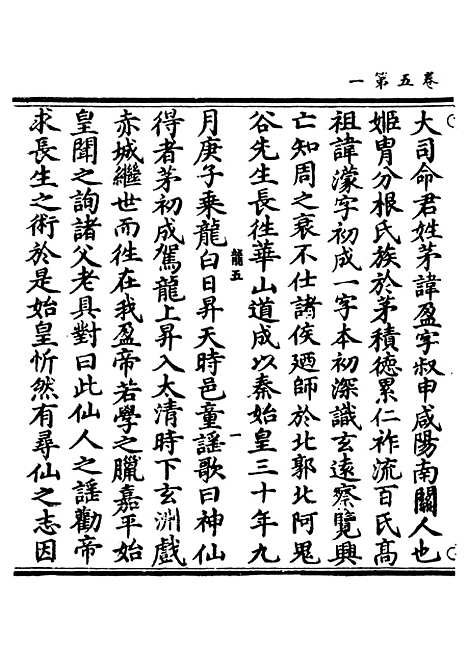 卷五第一
大司命君姓茅諱盈字叔申咸陽南關人也
姬胄分根氏族於茅積德累仁祚流百氏高
祖諱濛字初成一字本初深識玄遠察覽興
亡知周之衰不仕諸侯迺師於北郭北阿鬼
谷先生長往華山道成以秦始皇三十年九
龍五 一
月庚子乘龍白日昇天時邑童謠歌曰神仙
得者茅初成駕龍上昇入太清時下玄洲戲
赤城繼世而往在我盈帝若學之臘嘉平始
皇聞之詢諸父老具對曰此仙人之謠勸帝
求長生之術於是始皇忻然有尋仙之志因